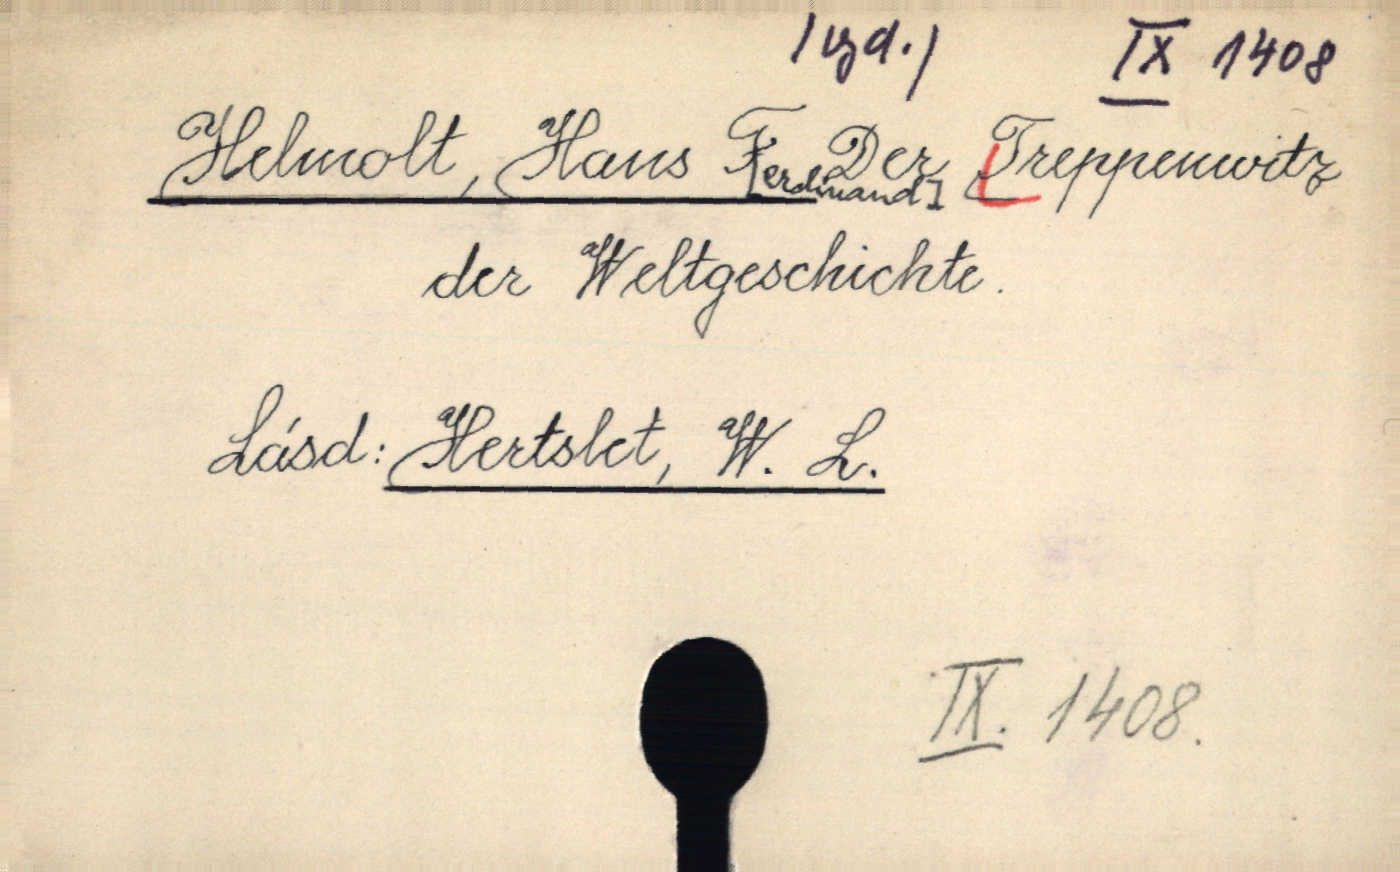 /ugd./ IX 1408
Helmolt, Hans F[erdinand] Der Treppenwitz
der Weltgeschichte.
Lásd: Hertslet, W. L.
IX. 1408.